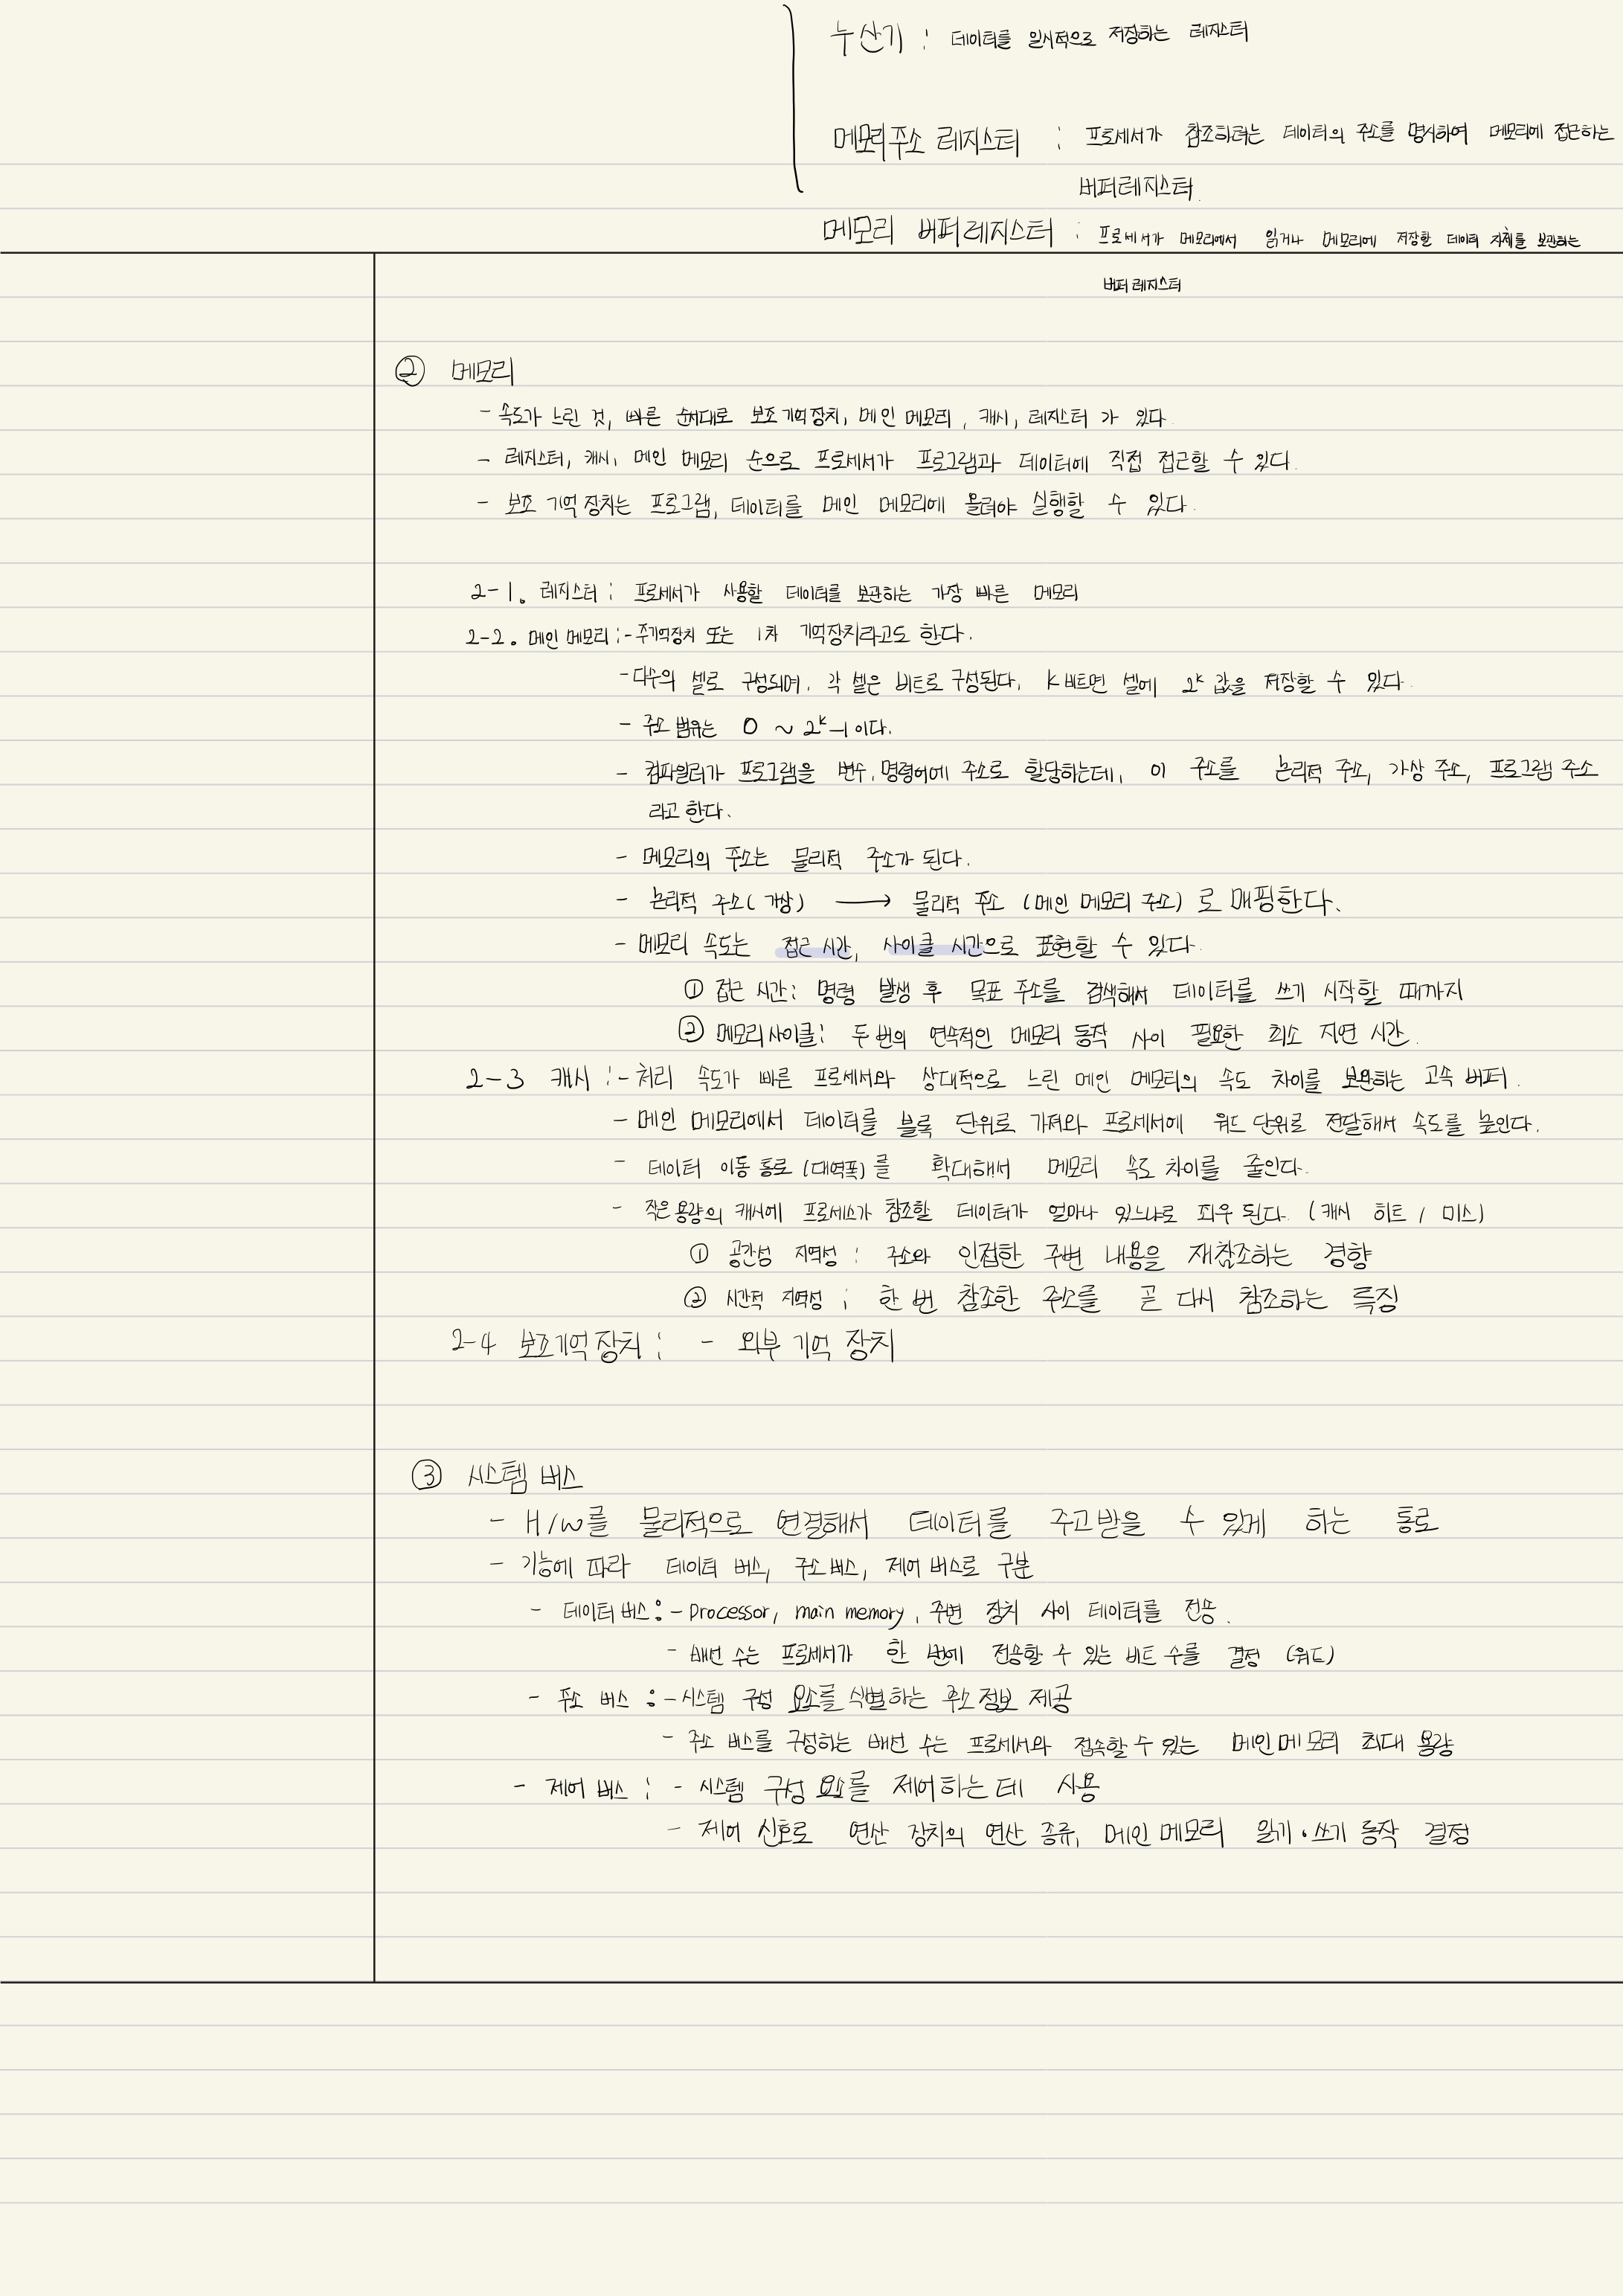 누산기 : 데이터를 일시적으로 저장하는 레지스터
메모리 주소 레지스터 : 프로세서가 참조하려는 데이터의 주소를 명시하여 메모리에 접근하는
버퍼 레지스터.
메모리 버퍼 레지스터 : 프로세서가 메모리에서 읽거나 메모리에 저장할 데이터 자체를 보관하는
버퍼 레지스터
② 메모리
- 속도가 느린 것, 빠른 순서대로 보조 기억장치, 메인 메모리, 캐시, 레지스터 가 있다.
- 레지스터, 캐시, 메인 메모리 순으로 프로세서가 프로그램과 데이터에 직접 접근할 수 있다.
- 보조 기억 장치는 프로그램, 데이터를 메인 메모리에 올려야 실행할 수 있다.
2-1. 레지스터 : 프로세서가 사용할 데이터를 보관하는 가장 빠른 메모리
2-2. 메인 메모리 : - 주기억장치 또는 1차 기억장치라고도 한다.
- 다수의 셀로 구성되며, 각 셀은 비트로 구성된다. K비트면 셀에 2ᵏ 값을 저장할 수 있다.
- 주소 범위는 0 ~ 2ᵏ-1 이다.
- 컴파일러가 프로그램을 변수, 명령어에 주소로 할당하는데, 이 주소를 논리적 주소, 가상 주소, 프로그램 주소
라고 한다.
- 메모리의 주소는 물리적 주소가 된다.
- 논리적 주소(가상) → 물리적 주소 (메인 메모리 주소) 로 매핑한다.
- 메모리 속도는 접근 시간, 사이클 시간으로 표현할 수 있다.
① 접근 시간 : 명령 발생 후 목표 주소를 검색해서 데이터를 쓰기 시작할 때까지
② 메모리 사이클 : 두 번의 연속적인 메모리 동작 사이 필요한 최소 지연 시간.
2-3 캐시 : - 처리 속도가 빠른 프로세서와 상대적으로 느린 메인 메모리의 속도 차이를 보완하는 고속 버퍼.
- 메인 메모리에서 데이터를 블록 단위로 가져와 프로세서에 워드 단위로 전달해서 속도를 높인다.
- 데이터 이동 통로 (대역폭) 를 확대해서 메모리 속도 차이를 줄인다.
- 작은 용량의 캐시에 프로세스가 참조할 데이터가 얼마나 있느냐로 좌우 된다. (캐시 히트 / 미스)
① 공간성 지역성 : 주소와 인접한 주변 내용을 재참조하는 경향
② 시간적 지역성 : 한 번 참조한 주소를 곧 다시 참조하는 특징
2-4 보조기억 장치 : - 외부 기억 장치
③ 시스템 버스
- H/W를 물리적으로 연결해서 데이터를 주고받을 수 있게 하는 통로
- 기능에 따라 데이터 버스, 주소 버스, 제어 버스로 구분
- 데이터 버스 : - Processor, main memory, 주변 장치 사이 데이터를 전송.
- 배선 수는 프로세서가 한 번에 전송할 수 있는 비트 수를 결정 (워드)
- 주소 버스 : - 시스템 구성 요소를 식별하는 주소 정보 제공
- 주소 버스를 구성하는 배선 수는 프로세서와 접속할 수 있는 메인 메모리 최대 용량
- 제어 버스 : - 시스템 구성 요소를 제어하는 데 사용
- 제어 신호로 연산 장치의 연산 종류, 메인 메모리 읽기 · 쓰기 동작 결정